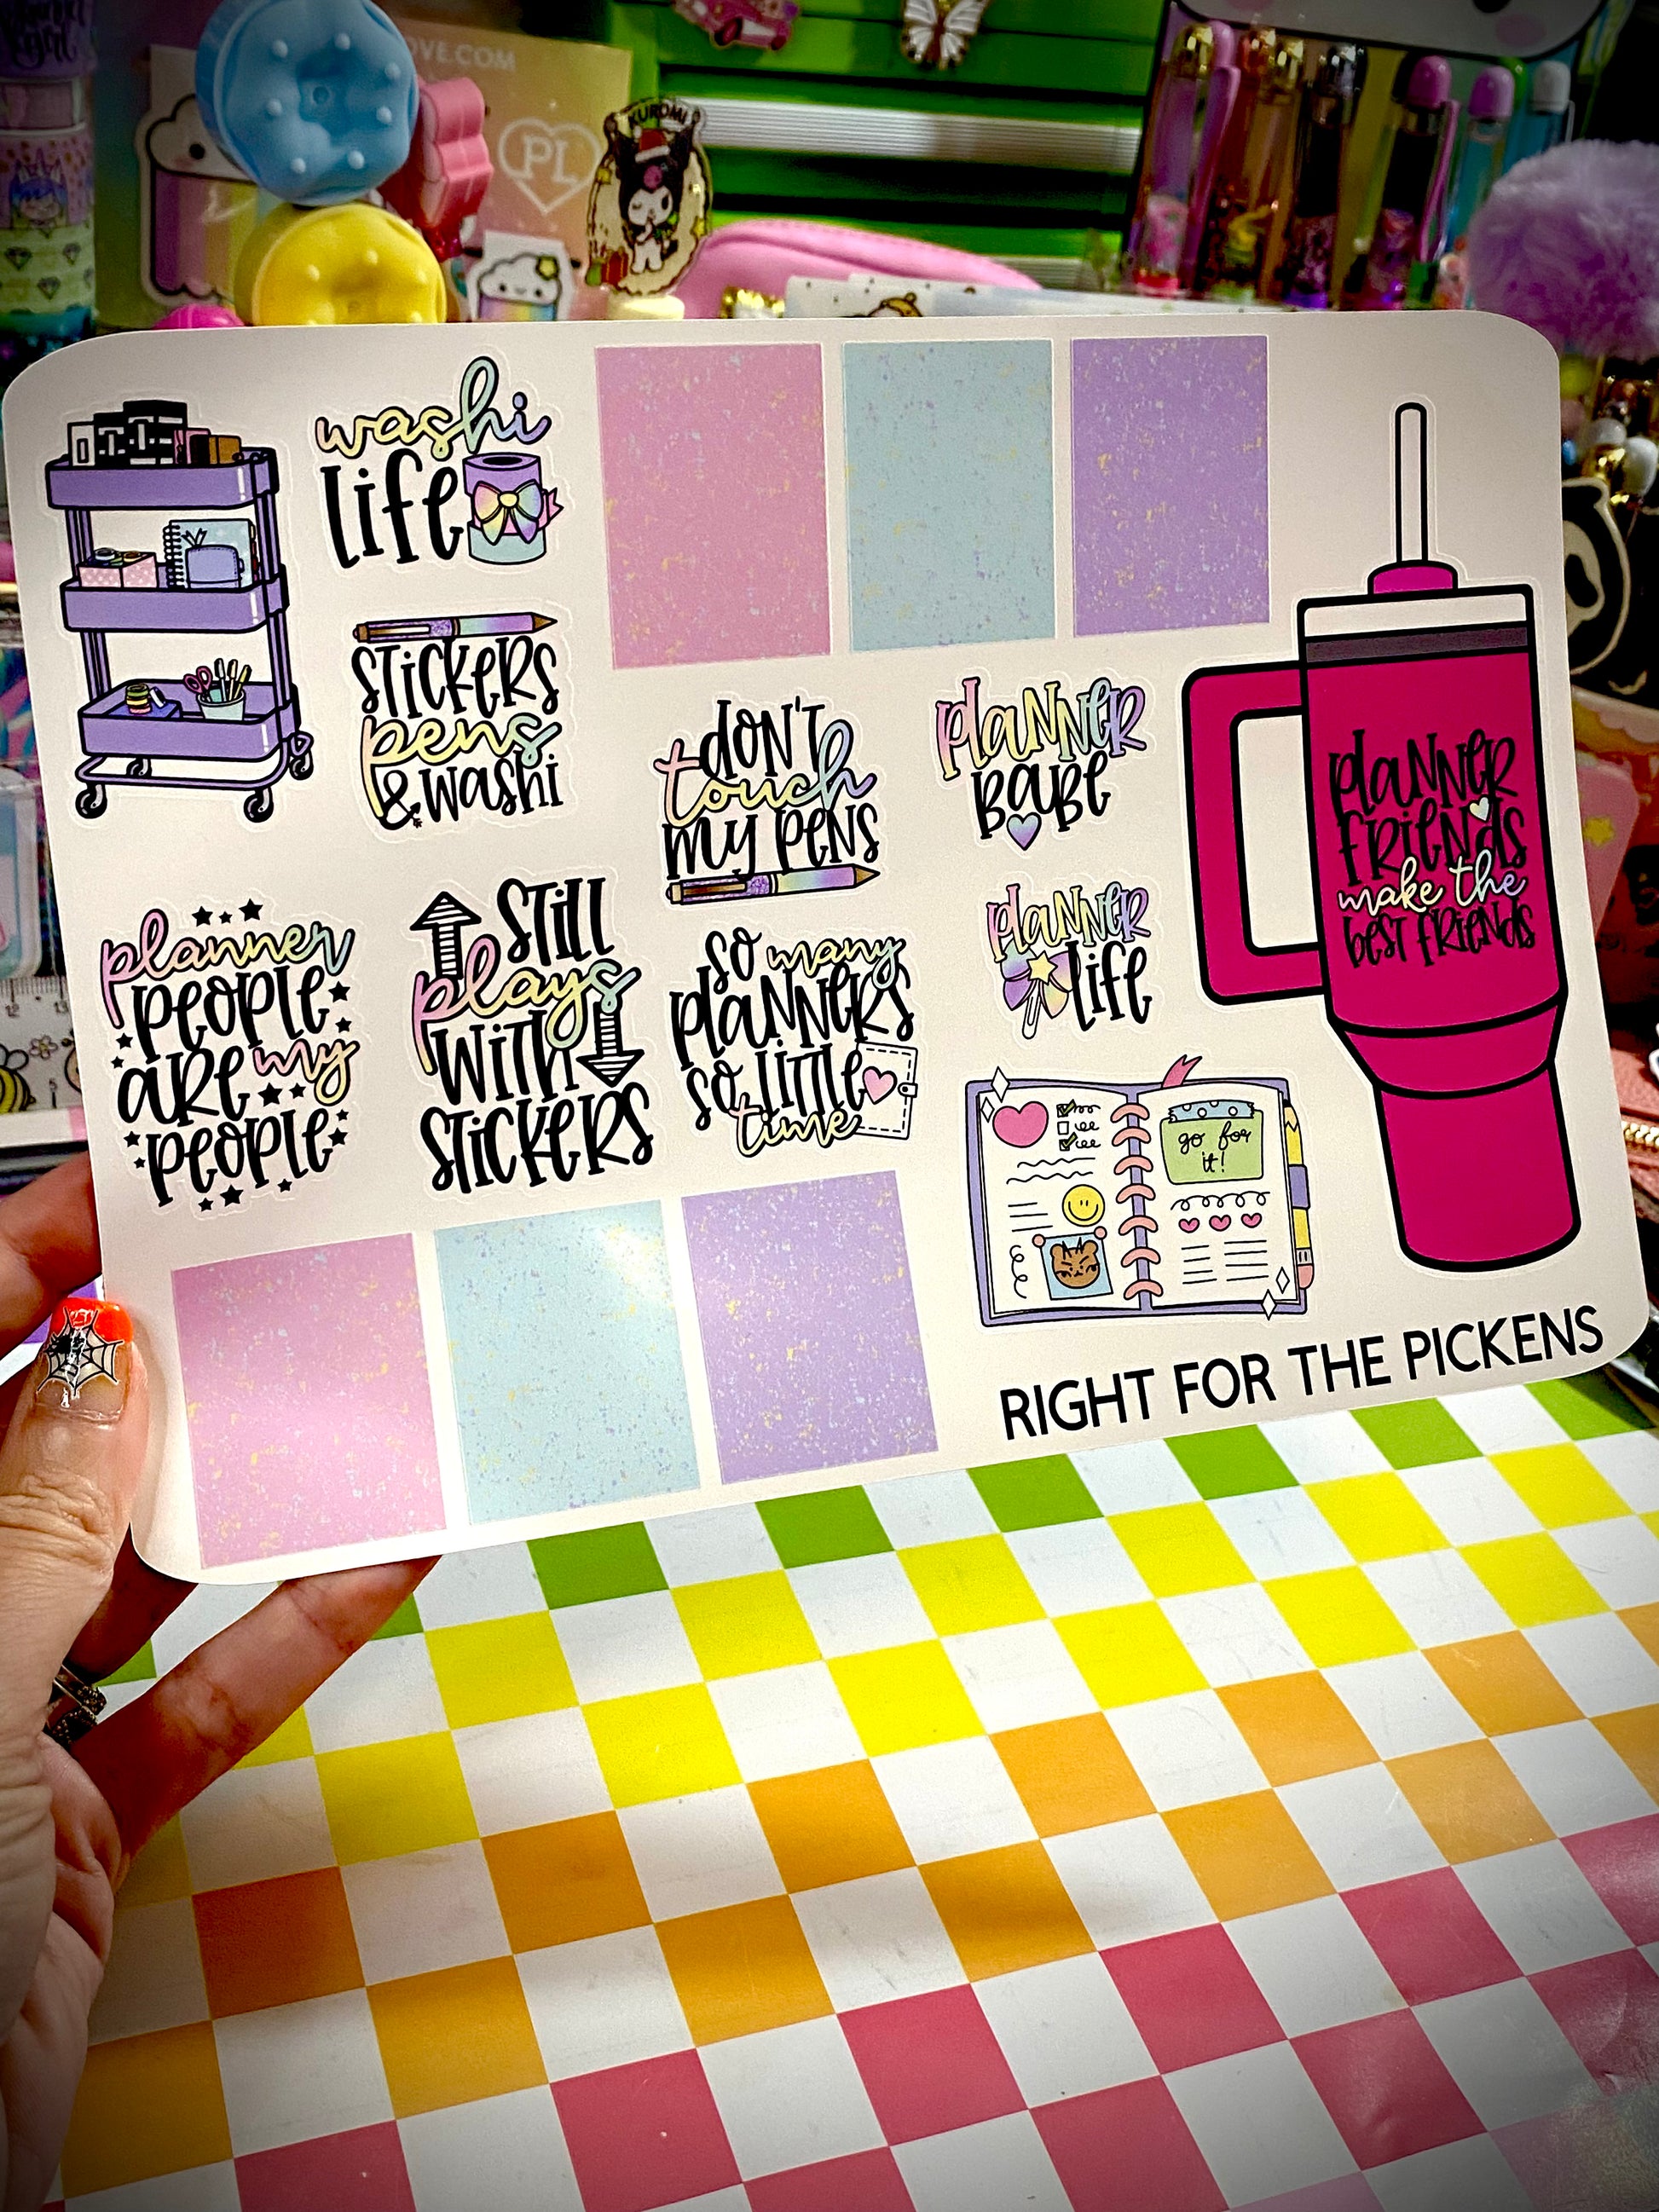 OVE.COM
PL
KUROMI
washi
life
stickers
pens
& washi
don't
touch
my pens
planner
babe
planner
friends
make the
best friends
planner
people
are my
people
still
plays
with
stickers
so many
planners
so little
time
planner
life
go for
it!
RIGHT FOR THE PICKENS
12 13